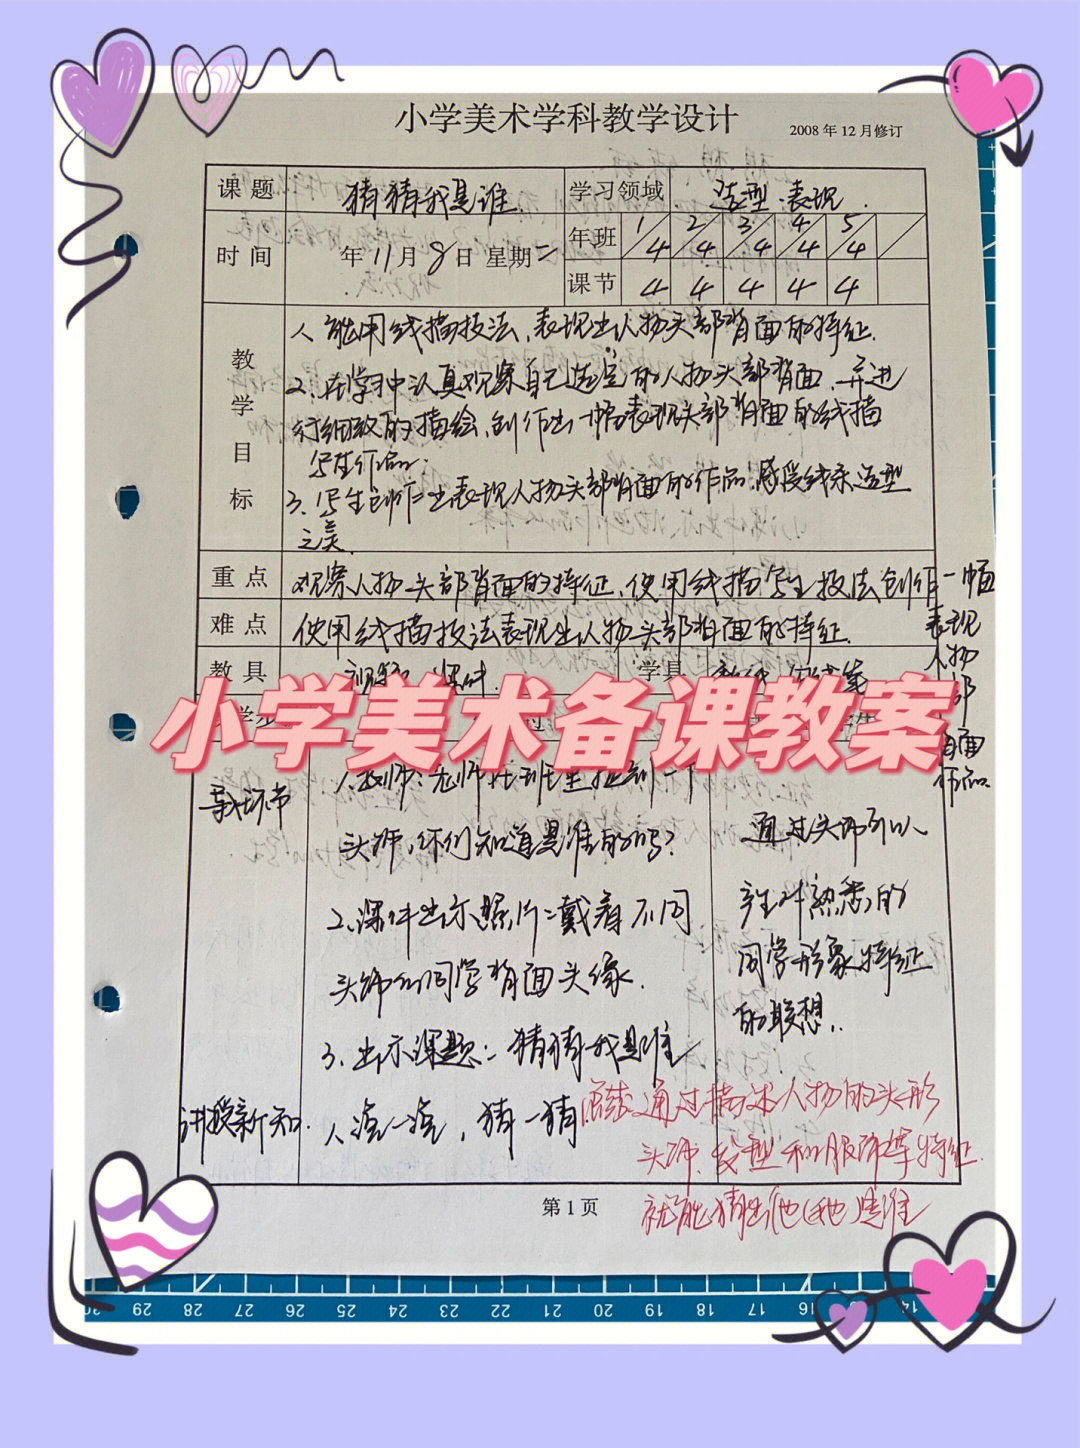 小学美术学科教学设计
2008年12月修订
课题 猜猜我是谁 学习领域 造型·表现
时间 年11月8日 星期二 年班 1/4 2/4 3/4 4/4 5/4
课节 4 4 4 4 4
教学目标
1、能用线描技法,表现出人物头部背面的特征.
2、在学习中认真观察自己选定的人物头部背面,并进
行细致的描绘,创作出一幅表现头部背面的线描
写生作品.
3、写生创作出表现人物头部背面的作品,感受线条造型
之美.
重点 观察人物头部背面的特征,使用线描写生技法创作一幅
表现
人物
部
背面
作品
难点 使用线描技法表现出人物头部背面的特征.
教具 课件. 学具
小学美术备课教案
导入环节
1、教师:老师在班里找到一个
头饰,你们知道是谁的吗?
2、课件出示照片:戴着不同
头饰的同学背面头像.
3、出示课题:猜猜我是谁
通过头饰引以
产生对熟悉的
同学形象特征
的联想..
讲授新知. 1、说一说,猜一猜
总结:通过描述人物的头形
头饰、发型和服饰等特征.
就能猜出他(她)是谁
第1页
29 28 27 26 25 24 23 22 21 20 19 18 17 16 14